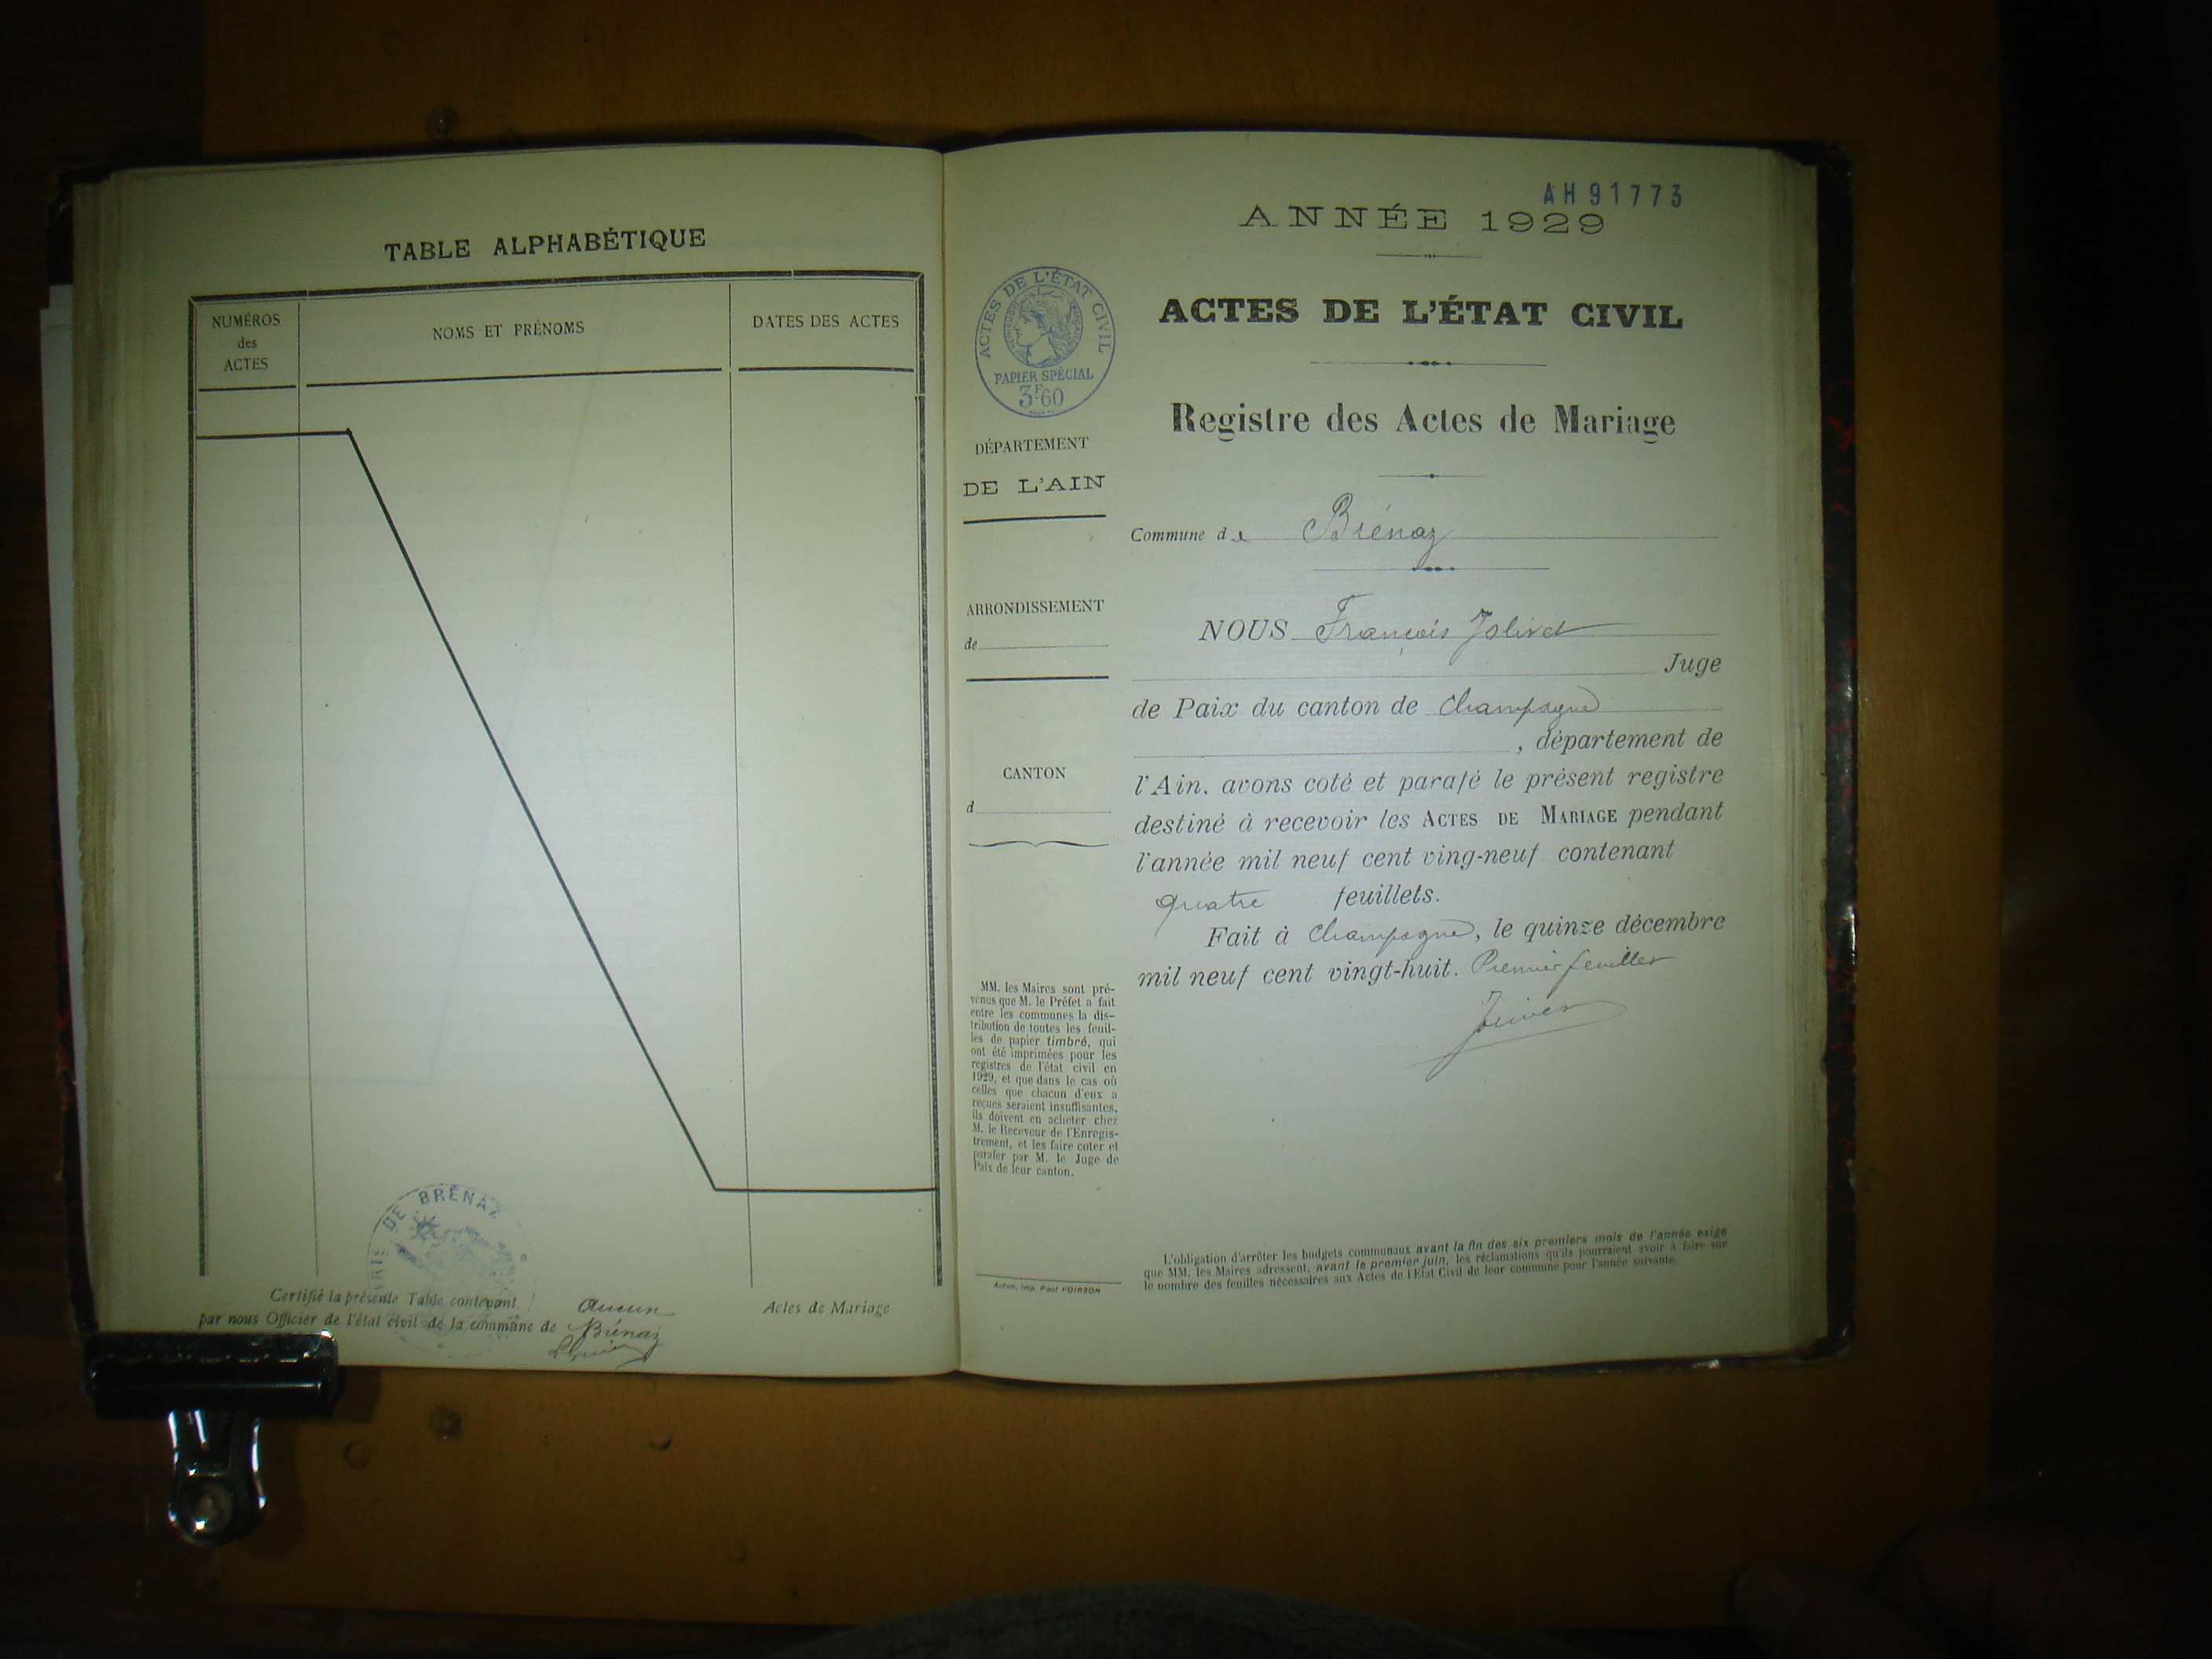 TABLE ALPHABÉTIQUE
NUMÉROS
des
ACTES
NOMS ET PRÉNOMS
DATES DES ACTES
DE BRÉNAZ
Certifié la présente Table contenant aucun Actes de Mariage
par nous Officier de l'état civil de la commune de Brénaz
AH91773
ANNÉE 1929
ACTES DE L'ÉTAT CIVIL
PAPIER SPÉCIAL
3F60
ACTES DE L'ÉTAT CIVIL
Registre des Actes de Mariage
DÉPARTEMENT
DE L'AIN
Commune de Brénaz
ARRONDISSEMENT
de
NOUS François Jolivet
Juge
de Paix du canton de Champagne
, département de
CANTON
d
l'Ain, avons coté et parafé le présent registre
destiné à recevoir les ACTES DE MARIAGE pendant
l'année mil neuf cent ving-neuf contenant
quatre feuillets.
Fait à Champagne, le quinze décembre
mil neuf cent vingt-huit. Premier feuillet
MM. les Maires sont pré-
venus que M. le Préfet a fait
entre les communes la dis-
tribution de toutes les feuil-
les de papier timbré, qui
ont été imprimées pour les
registres de l'état civil en
1929, et que dans le cas où
celles que chacun d'eux a
reçues seraient insuffisantes,
ils doivent en acheter chez
M. le Receveur de l'Enregis-
trement, et les faire coter et
parafer par M. le Juge de
Paix de leur canton.
L'obligation d'arrêter les budgets communaux avant la fin des six premiers mois de l'année exige
que MM. les Maires adressent, avant le premier juin, les réclamations qu'ils pourraient avoir à faire sur
le nombre des feuilles nécessaires aux Actes de l'Etat Civil de leur commune pour l'année suivante.
Imp. Paul POIRSON